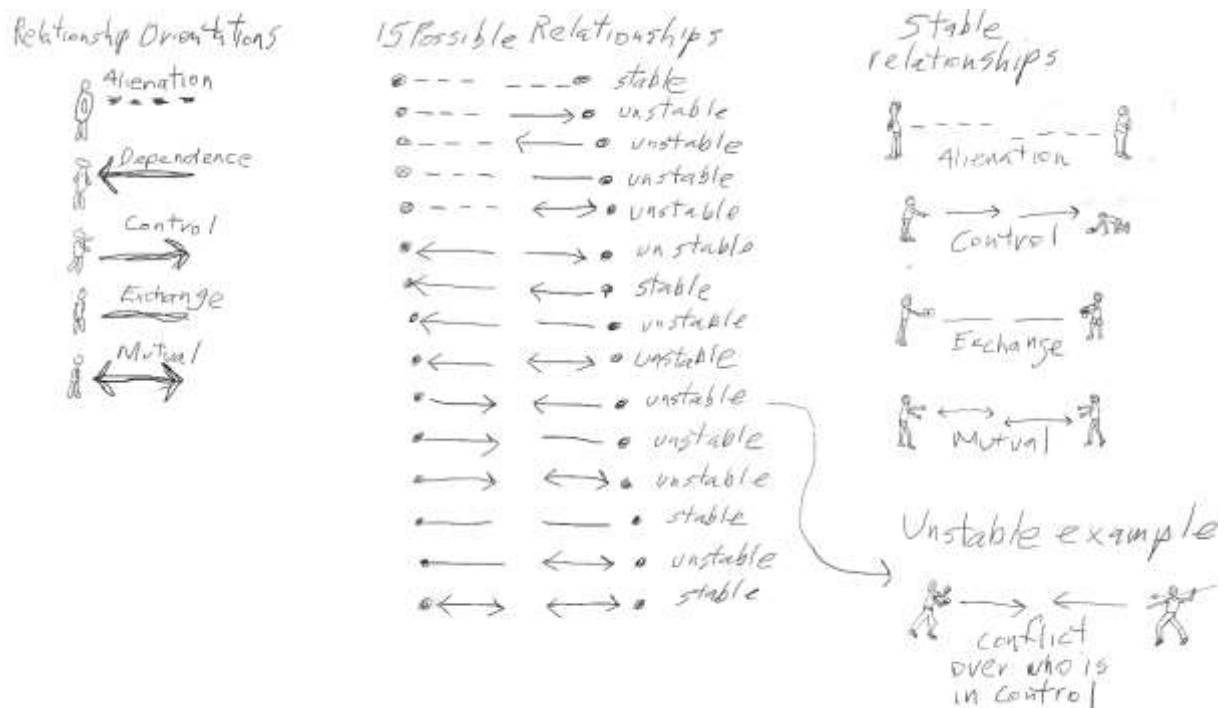 Relationship Orientations
Alienation
Dependence
Control
Exchange
Mutual
15 Possible Relationships
stable
unstable
unstable
unstable
unstable
unstable
stable
unstable
unstable
unstable
unstable
unstable
stable
unstable
stable
Stable
relationships
Alienation
Control
Exchange
Mutual
Unstable example
conflict
over who is
in control